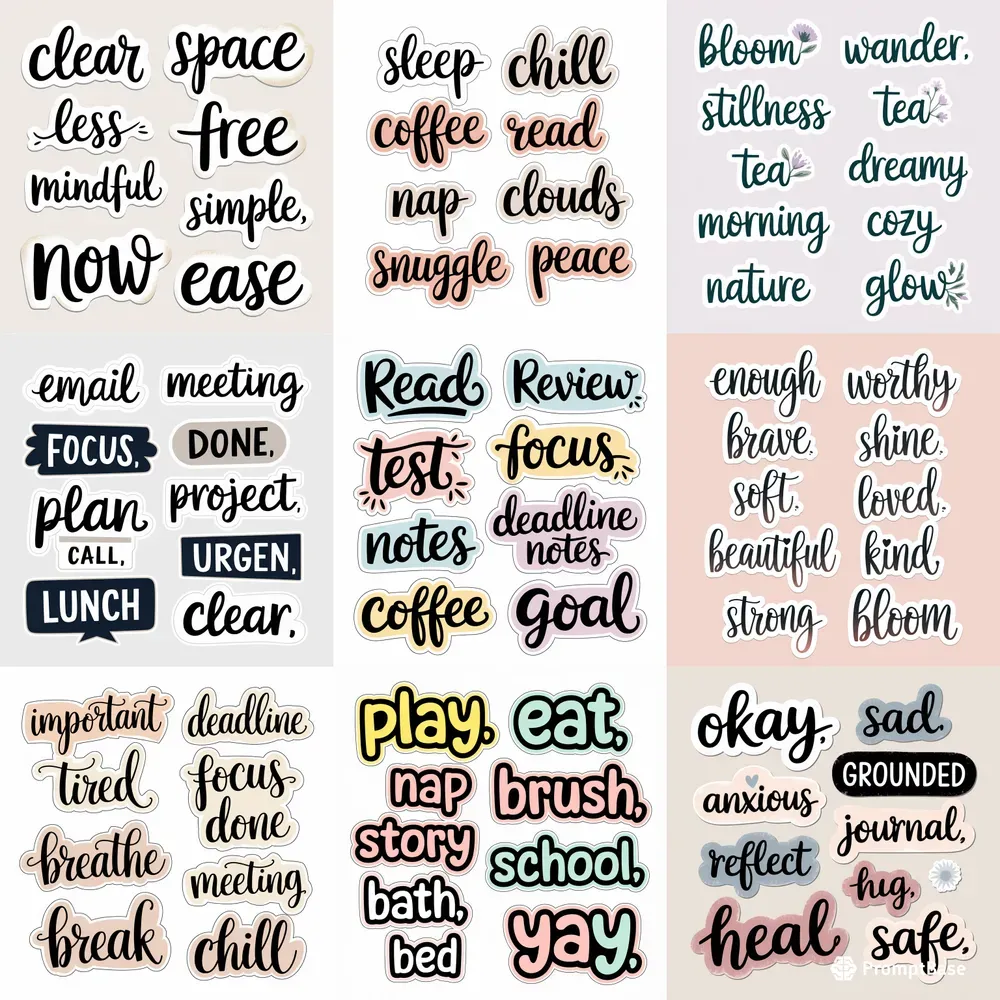 clear
space
less
free
mindful
simple,
now
ease
sleep
chill
coffee
read
nap
clouds
snuggle
peace
bloom
wander,
stillness
tea
tea
dreamy
morning
cozy
nature
glow
email
meeting
FOCUS,
DONE,
plan
project,
CALL,
URGEN,
LUNCH
clear,
Read
Review,
test
focus
notes
deadline
notes
coffee
goal
enough
worthy
brave,
shine,
soft,
loved,
beautiful
kind
strong
bloom
important
deadline
tired
focus
done
breathe
meeting,
break
chill
play,
eat,
nap
brush,
story
school,
bath,
bed
yay,
okay,
sad,
GROUNDED
anxious
journal,
reflect
hug,
heal
safe,
PromptBase